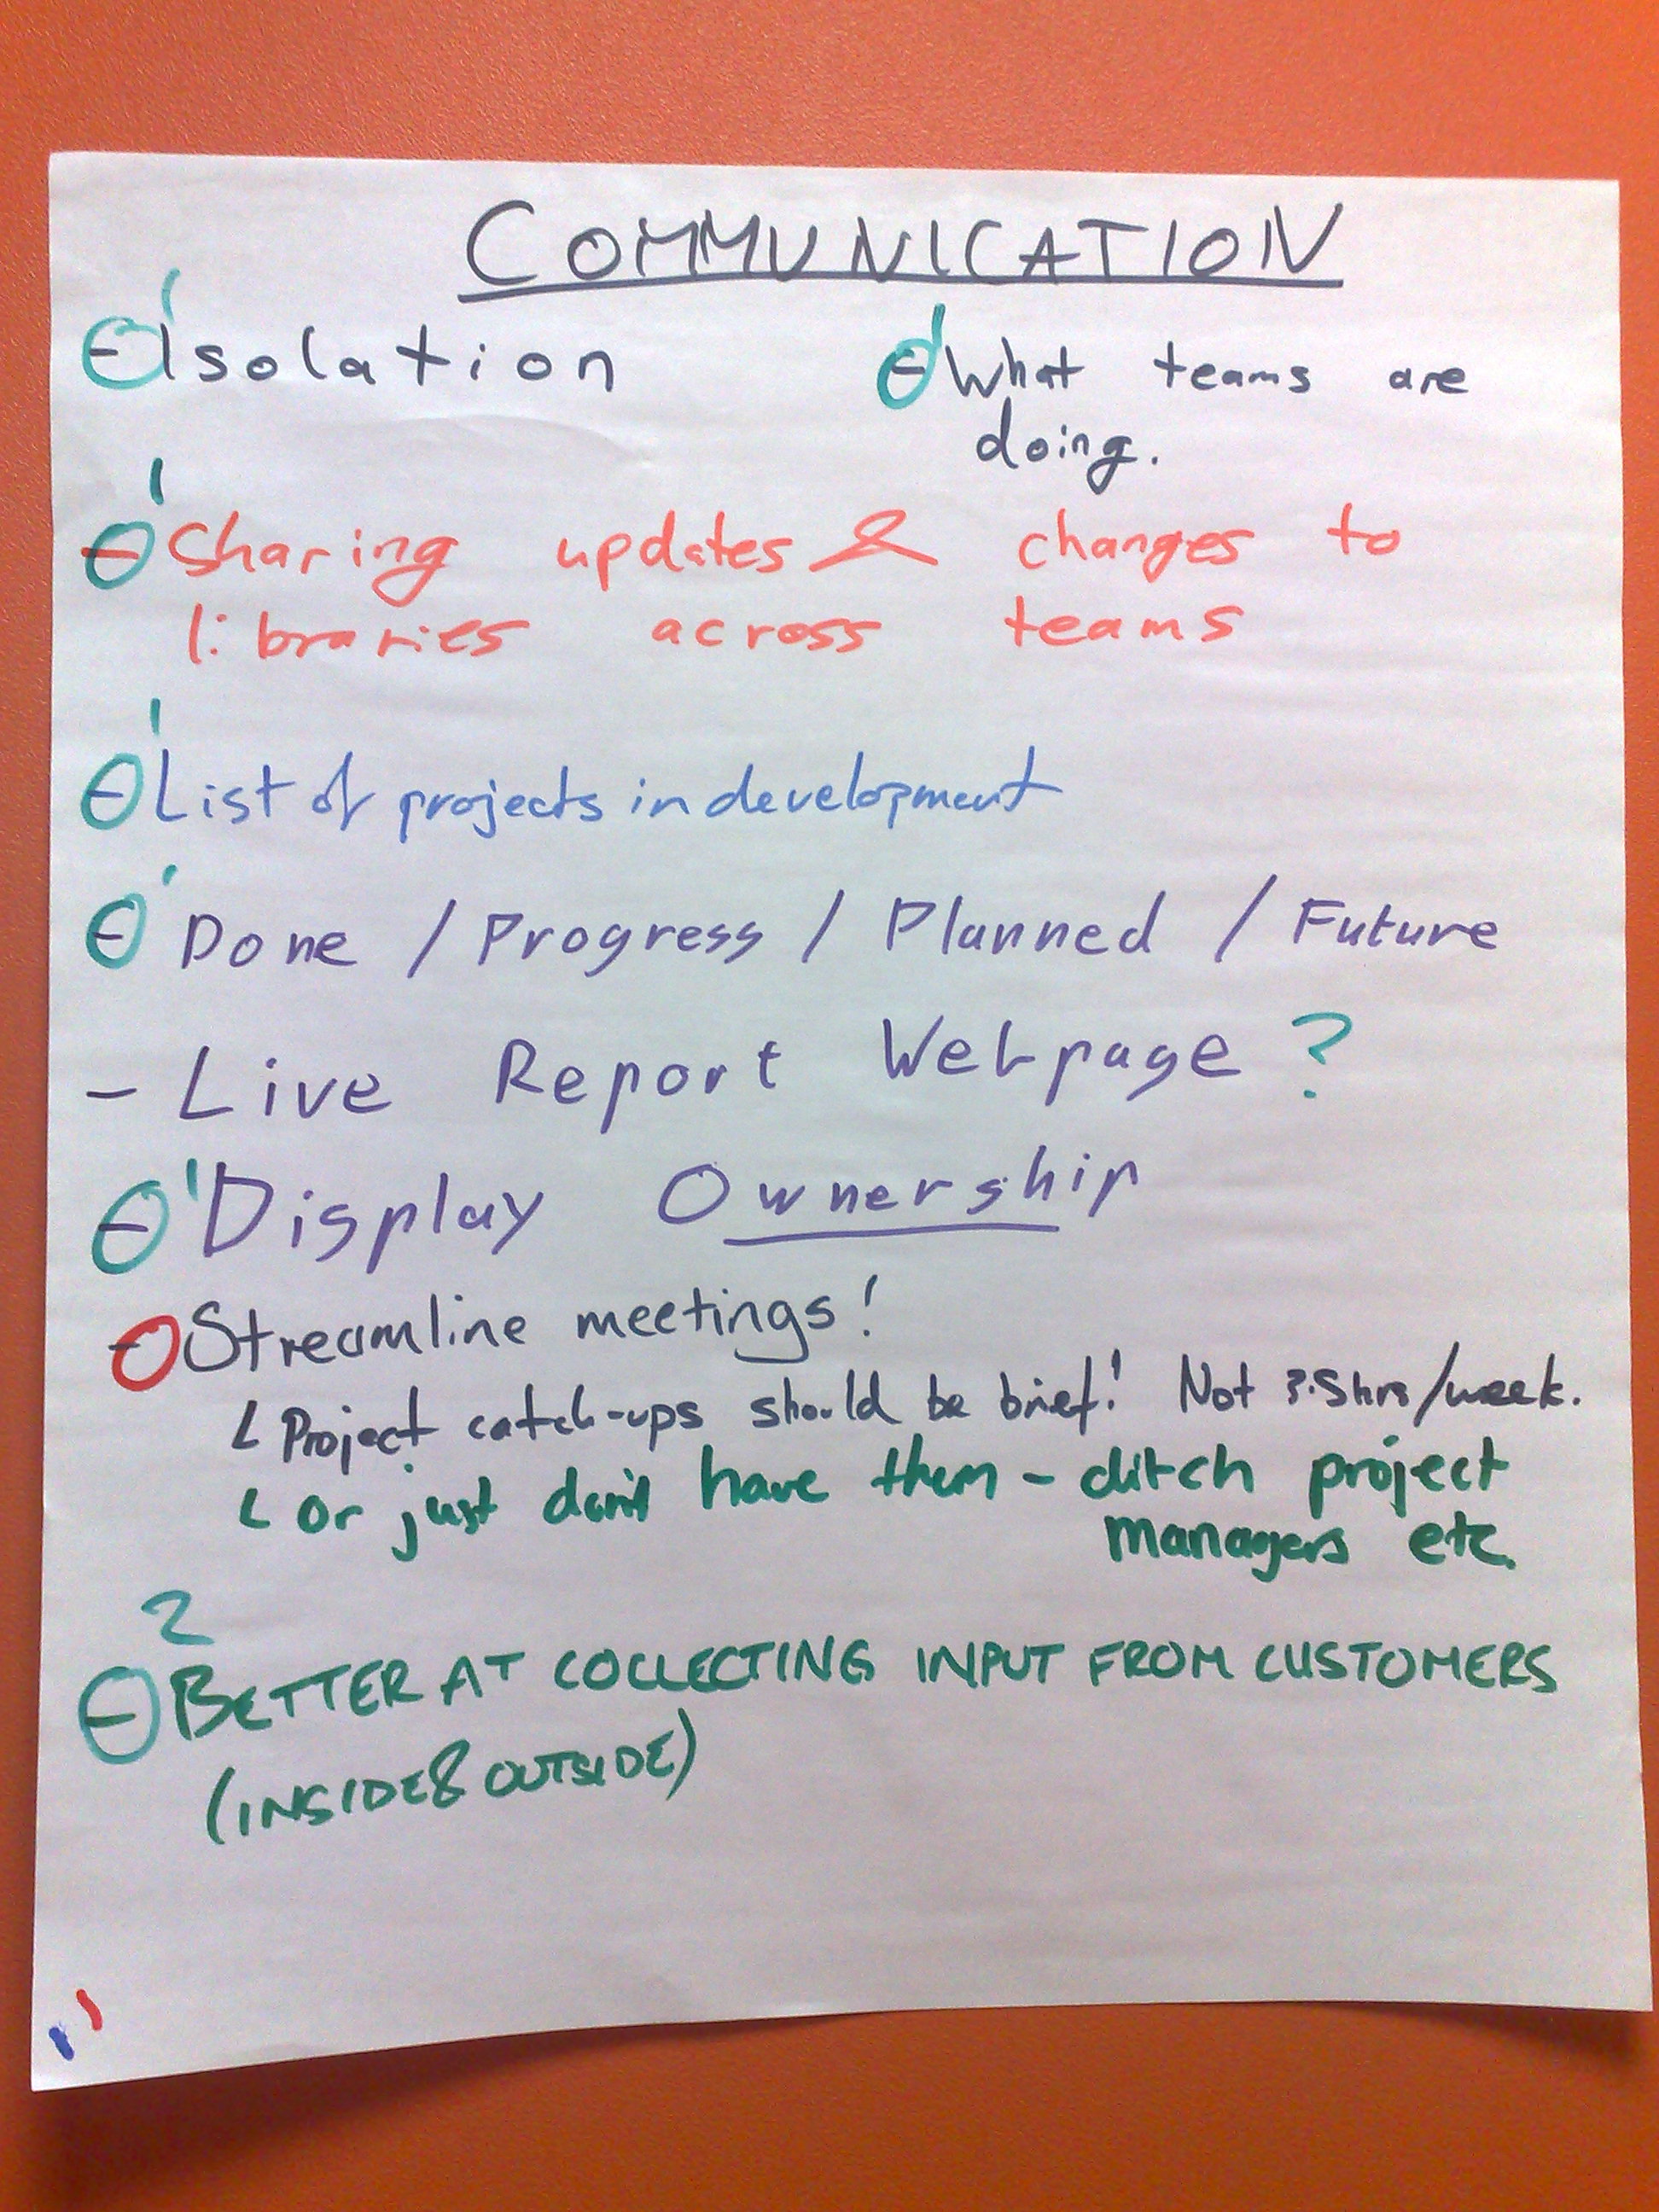 COMMUNICATION
1
- Isolation
1
- What teams are
doing.
1
- Sharing updates & changes to
libraries across teams
1
- List of projects in development
1
- Done / Progress / Planned / Future
- Live Report Webpage ?
1
- Display Ownership
- Streamline meetings!
Project catch-ups should be brief! Not hrs/week.
or just don't have them - ditch project
managers etc.
2
- BETTER AT COLLECTING INPUT FROM CUSTOMERS
(INSIDE & OUTSIDE)